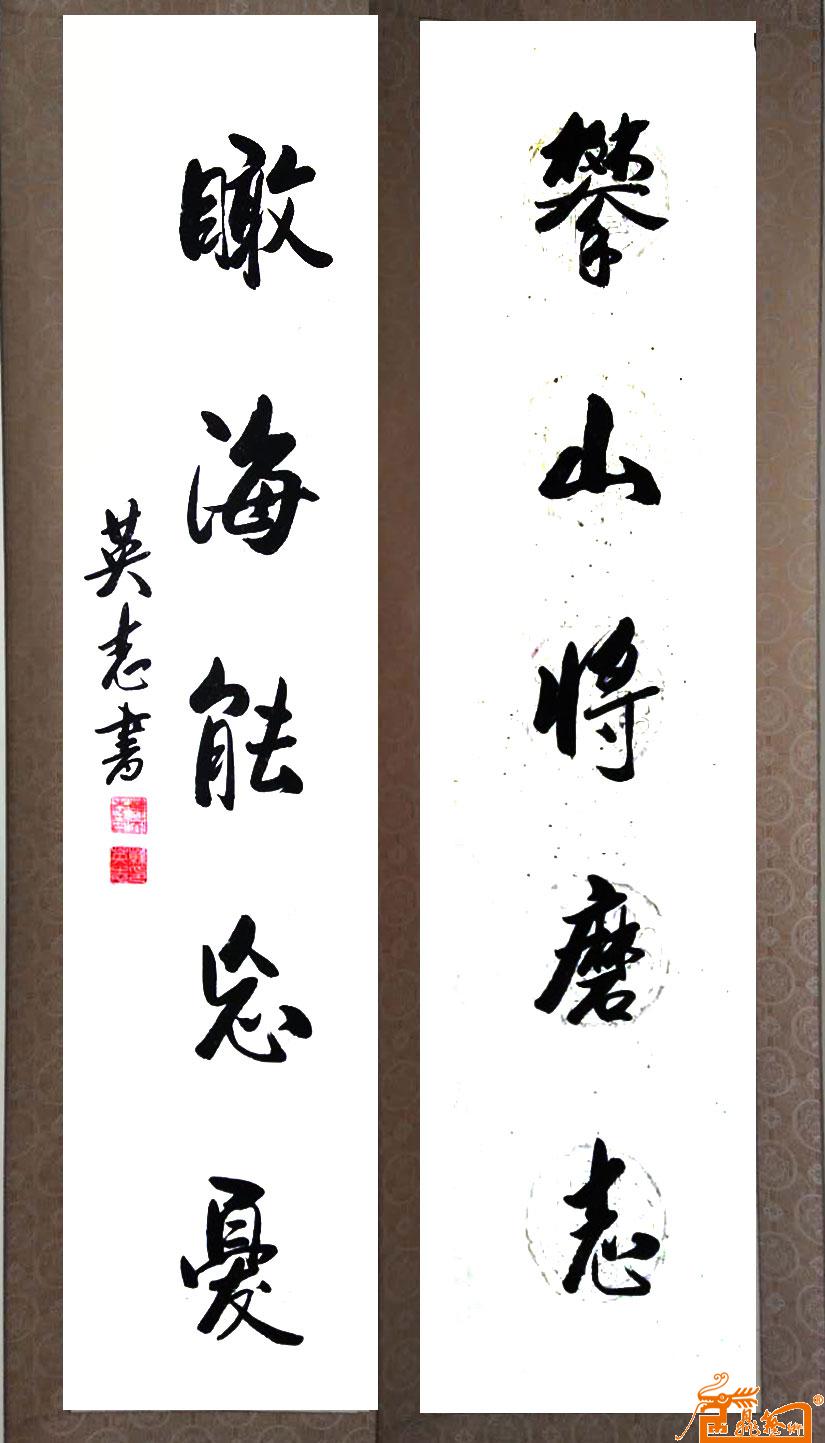 攀山將磨志
瞰海能忘憂
英志書